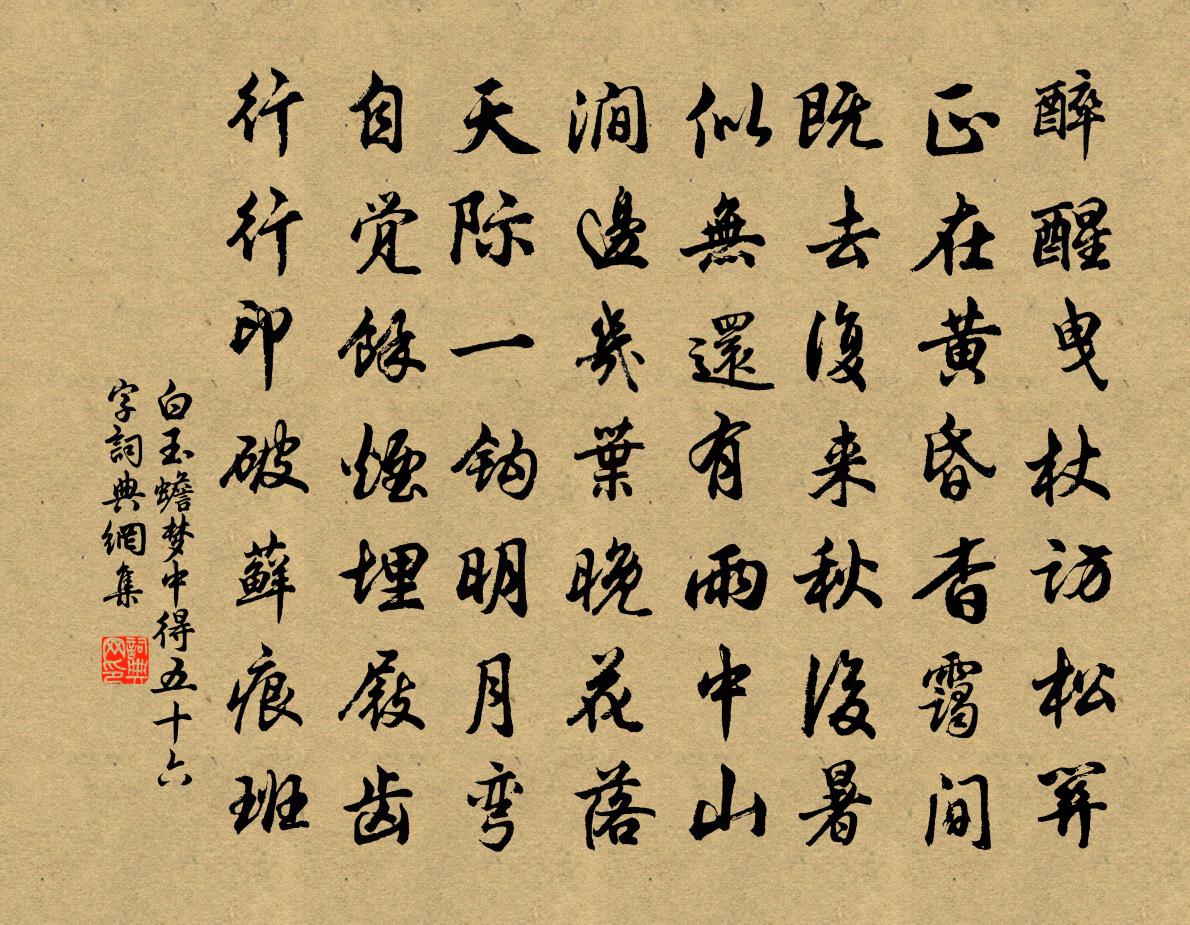 醉醒曳杖访松关
正在黄昏杳霭间
既去復来秋後暑
似無還有雨中山
澗邊幾葉晚花落
天际一钩明月弯
自觉餘煙埋屐齿
行行印破蘚痕班
白玉蟾梦中得五十六
字詞典網集
詞典网印